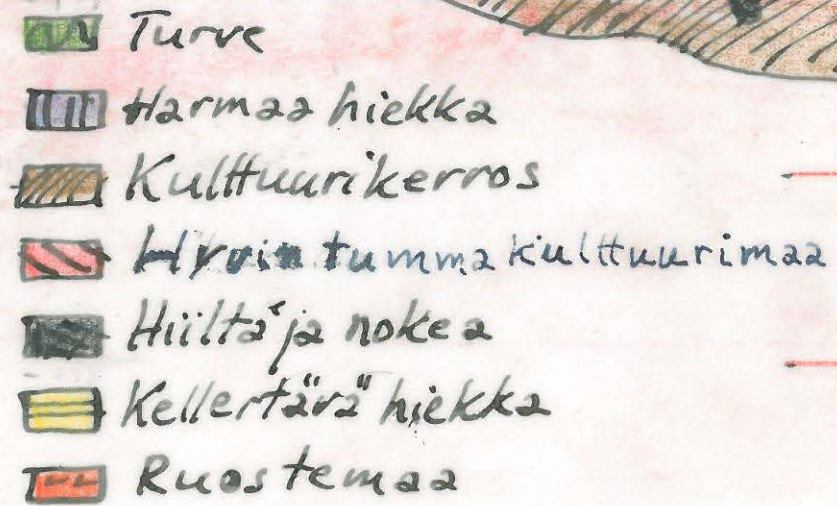 Turve
Harmaa hiekka
Kulttuurikerros
Hyvin tumma kulttuurimaa
Hiiltä ja nokea
Kellertävä hiekka
Ruostemaa